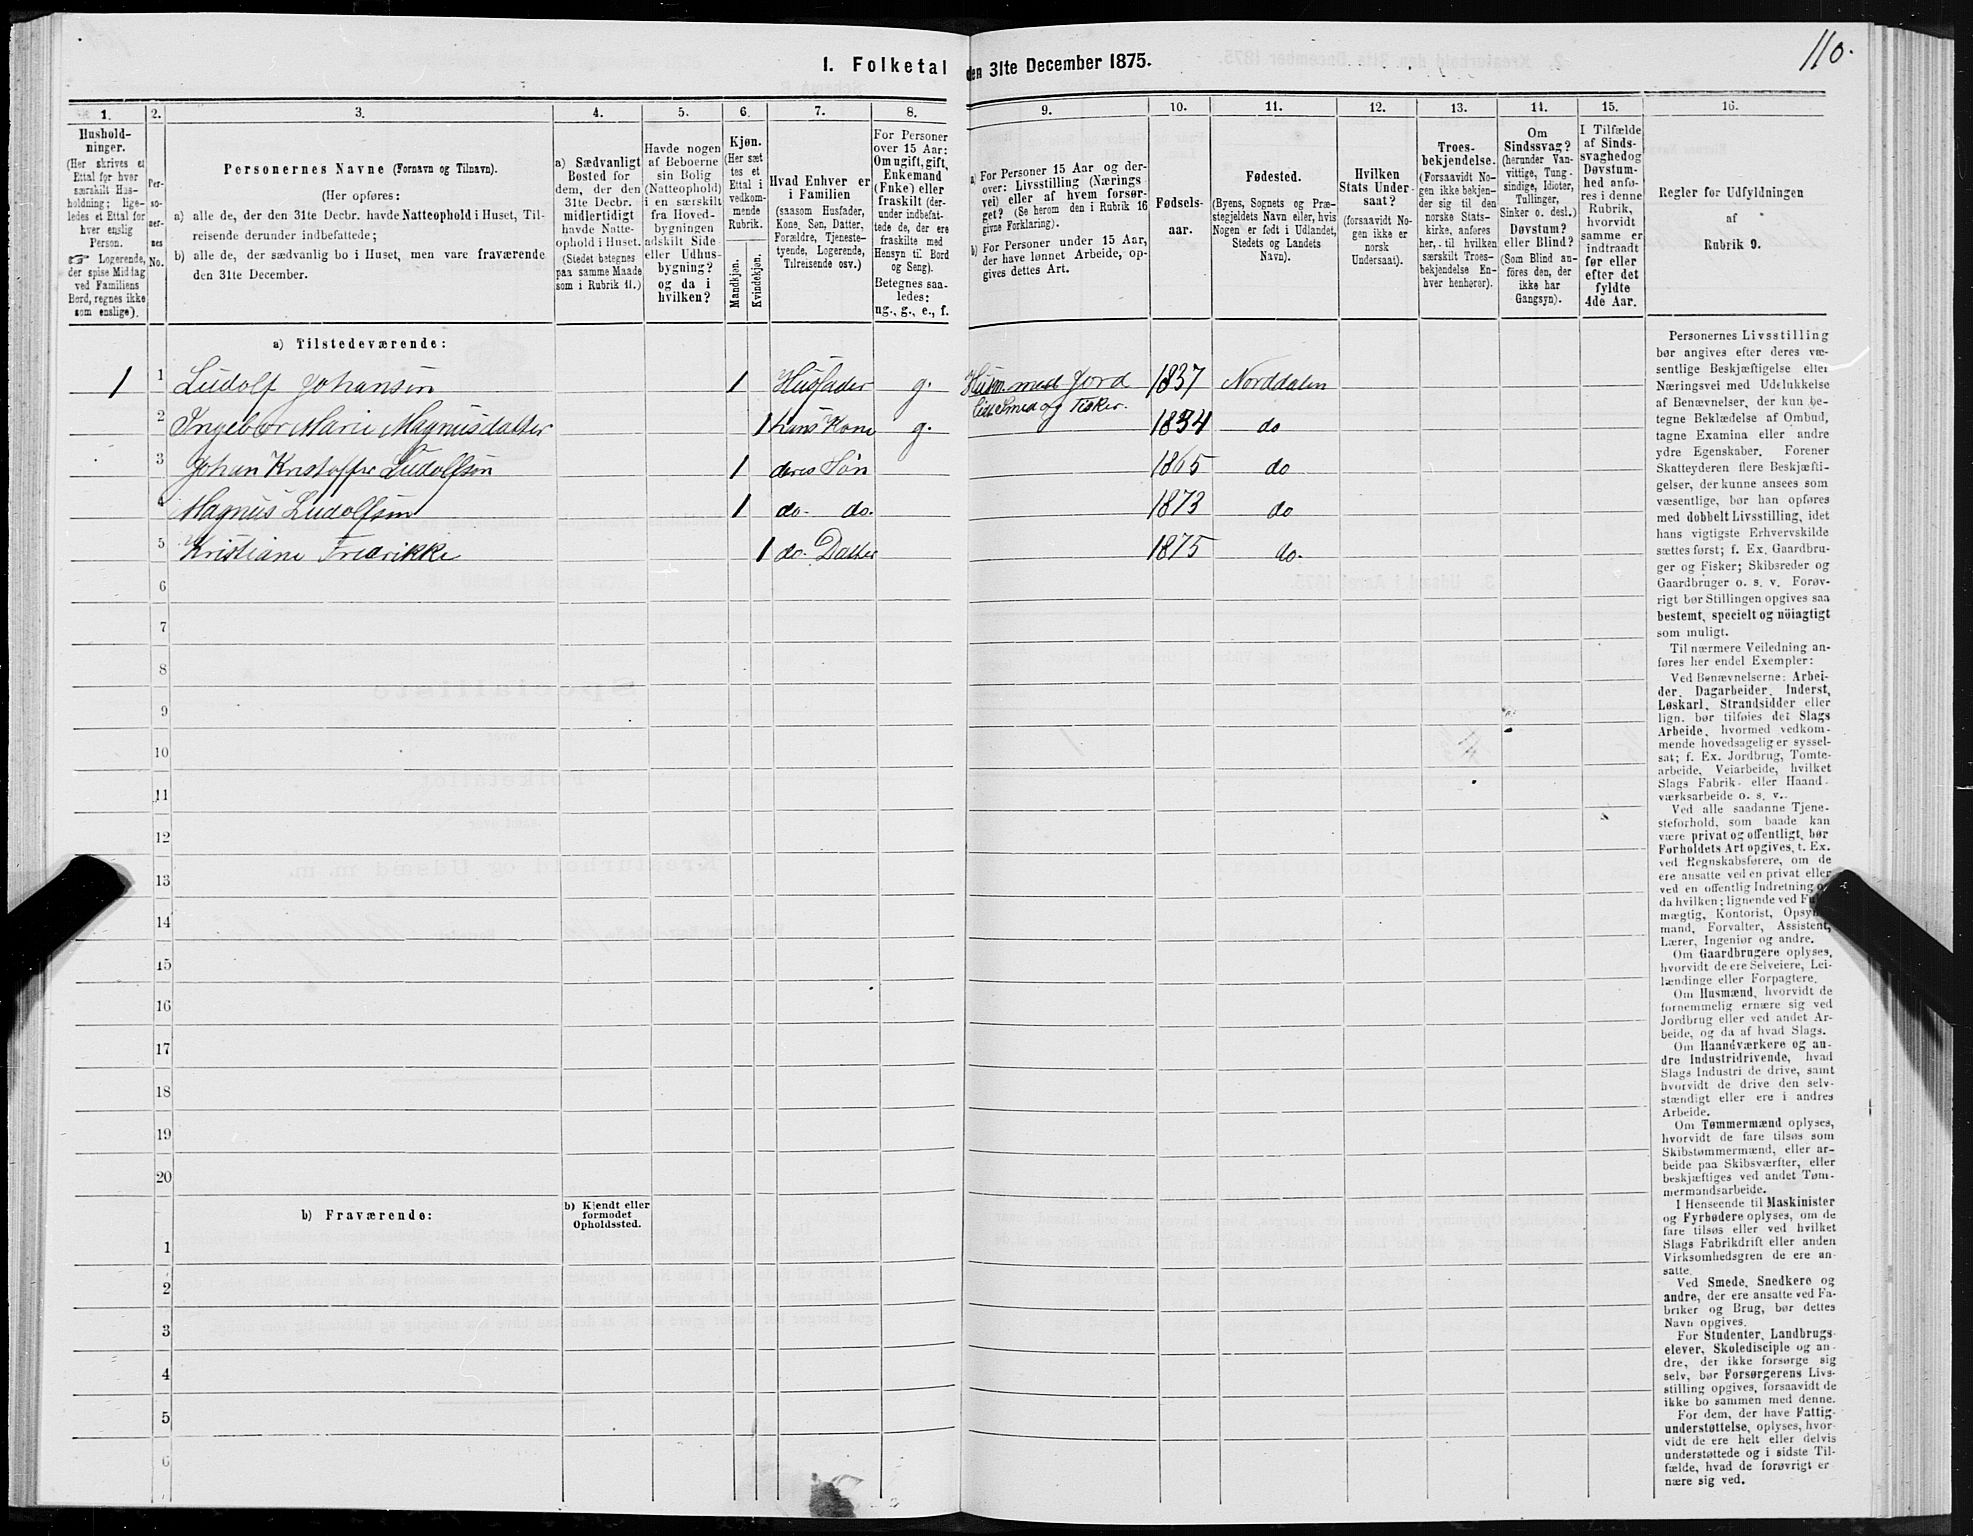 110.
I. Folketal den 31te December 1875.
1. 2. 3. 4. 5. 6. 7. 8. 9. 10. 11. 12. 13. 14. 15. 16.
Hushold-
ninger.
(Her skrives et
Ettal for hver
særskilt Hus-
holdning; lige-
ledes et Ettal for
hver enslig
Person.
☞ Logerende,
der spise Middag
ved Familiens
Bord, regnes ikke
som enslige).
Per-
so-
ner-
nes
No.
Personernes Navne (Fornavn og Tilnavn).
(Her opføres:
a) alle de, der den 31te Decbr. havde Natteophold i Huset, Til-
reisende derunder indbefattede;
b) alle de, der sædvanlig bo i Huset, men vare fraværende
den 31te December.
a) Sædvanligt
Bosted for
dem, der den
31te Decbr.
midlertidigt
havde Natte-
ophold i Huset.
(Stedet betegnes
paa samme Maade
som i Rubrik 11.)
Havde nogen
af Beboerne
sin Bolig
(Natteophold)
i en særskilt
fra Hoved-
bygningen
adskilt Side
eller Udhus-
bygning?
og da i
hvilken?
Kjøn.
(Her sæt
tes et
Ettal i
vedkom-
mende
Rubrik.
Mandkjøn.
Kvindekjøn.
Hvad Enhver er
i Familien
(saasom Husfader,
Kone, Søn, Datter,
Forældre, Tjeneste-
tyende, Logerende,
Tilreisende osv.)
For Personer
over 15 Aar:
Om ugift, gift,
Enkemand
(Enke) eller
fraskilt (der-
under indbefat-
tede de, der ere
fraskilte med
Hensyn til Bord
og Seng).
Betegnes saa-
ledes:
ug., g., e., f.
a) For Personer 15 Aar og der-
over: Livsstilling (Nærings-
vei) eller af hvem forsør-
get? (Se herom den i Rubrik 16
givne Forklaring).
b) For Personer under 15 Aar,
der have lønnet Arbeide, op-
gives dettes Art.
Fødsels-
aar.
Fødested.
(Byens, Sognets og Præ-
stegjeldets Navn eller, hvis
Nogen er født i Udlandet,
Stedets og Landets
Navn).
Hvilken
Stats Under-
saat?
(forsaavidt No-
gen ikke er
norsk
Undersaat).
Troes-
bekjendelse.
(Forsaavidt No-
gen ikke bekjen-
der sig til den
norske Stats-
kirke, anføres
her, til hvilken
særskilt Troes-
bekjendelse En-
hver henhører).
Om
Sindssvag?
(herunder Van-
vittige, Tung-
sindige, Idioter,
Tullinger,
Sinker o. desl.)
Døvstum?
eller Blind?
(Som Blind an-
føres den, der
ikke har
Gangsyn).
I Tilfælde
af Sinds-
svaghed og
Døvstum-
hed anfø-
res i denne
Rubrik,
hvorvidt
samme er
indtraadt
før eller
efter det
fyldte
4de Aar.
Regler for Udfyldningen
af
Rubrik 9.
a) Tilstedeværende:
1 1 Ludolf Johansen 1 Husfader g. Husm. med Jord 1837 Norddalen
Smed og Fisker.
2 Ingebor Marie Magnusdatter 1 hans Kone g. 1834 do
3 Johan Kristoffer Ludolfsen 1 deres Søn 1865 do
4 Magnus Ludolfsen 1 do. do. 1873 do
5 Kristiane Fredrikke 1 do. Datter 1875 do.
6
7
8
9
10
11
12
13
14
15
16
17
18
19
20
b) Fraværende:
b) Kjendt eller
formodet
Opholdssted.
1
2
3
4
5
6
Personernes Livsstilling
bør angives efter deres væ-
sentlige Beskjæftigelse eller
Næringsvei med Udelukkelse
af Benævnelser, der kun be-
tegne Beklædelse af Ombud,
tagne Examina eller andre
ydre Egenskaber. Forener
Skatteyderen flere Beskjæfti-
gelser, der kunne ansees som
væsentlige, bør han opføres
med dobbelt Livsstilling, idet
hans vigtigste Erhvervskilde
sættes først; f. Ex. Gaardbru-
ger og Fisker; Skibsreder og
Gaardbruger o. s. v. Forøv-
rigt bør Stillingen opgives saa
bestemt, specielt og nöiagtigt
som muligt.
Til nærmere Veiledning an-
føres her endel Exempler:
Ved Benævnelserne: Arbei-
der, Dagarbeider, Inderst,
Løskarl, Strandsidder eller
lign. bør tilføies det Slags
Arbeide, hvormed vedkom-
mende hovedsagelig er syssel-
sat; f. Ex. Jordbrug, Tomte-
arbeide, Veiarbeide, hvilket
Slags Fabrik- eller Haand-
værksarbeide o. s. v.
Ved alle saadanne Tjene-
steforhold, som baade kan
være privat og offentligt, bør
Forholdets Art opgives, t. Ex.
ved Regnskabsførere, om de
ere ansatte ved en privat eller
ved en offentlig Indretning
da hvilken; lignende ved
mægtig, Kontorist, Opsyns-
mand, Forvalter, Assistent,
Lærer, Ingeniør og andre.
Om Gaardbrugere oplyses,
hvorvidt de ere Selveiere, Lei-
lændinge eller Forpagtere.
Om Husmænd, hvorvidt de
fornemmelig ernære sig ved
Jordbrug eller ved andet Ar-
beide, og da af hvad Slags.
Om Haandværkere og an-
dre Industridrivende, hvad
Slags Industri de drive, samt
hvorvidt de drive den selv-
stændigt eller ere i andres
Arbeide.
Om Tømmermænd oplyses,
hvorvidt de fare tilsøs som
Skibstømmermænd, eller ar-
beide paa Skibsværfter, eller
beskjæftiges ved andet Tøm-
mermandsarbeide.
I Henseende til Maskinister
og Fyrbødere oplyses, om de
fare tilsøs eller ved hvilket
Slags Fabrikdrift eller anden
Virksomhedsgren de ere an-
satte.
Ved Smede, Snedkere og
andre, der ere ansatte ved Fa-
briker og Brug, bør dettes
Navn opgives.
For Studenter, Landbrugs-
elever, Skoledisciple og an-
dre, der ikke forsørge sig
selv, bør Forsørgerens Livs-
stilling opgives, forsaavidt de
ikke bo sammen med denne.
For dem, der have Fattig-
understøttelse, oplyses, hvor-
vidt de ere helt eller delvis
understøttede og i sidste Til-
fælde, hvad de forøvrigt er-
nære sig ved.